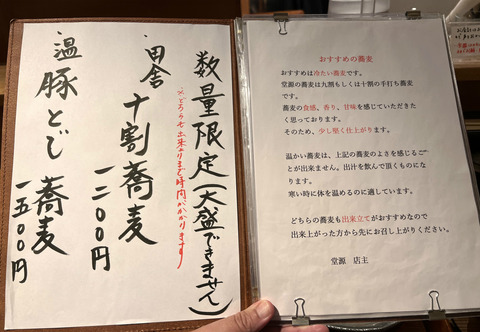 数量限定(大盛できません)
※どちらも出来上りまで時間がかかります
田舎 十割蕎麦
一二〇〇円
温豚とじ 蕎麦
一五〇〇円
おすすめの蕎麦
おすすめは冷たい蕎麦です。
堂源の蕎麦は九割もしくは十割の手打ち蕎麦
です。
蕎麦の食感、香り、甘味を感じていただきた
く思っております。
そのため、少し堅く仕上がります。
温かい蕎麦は、上記の蕎麦のよさを感じるこ
とが出来ません。出汁を飲んで頂くものにな
ります。
寒い時に体を温めるのに適しています。
どちらの蕎麦も出来立てがおすすめなので
出来上がった方から先にお召し上がりください。
堂源 店主